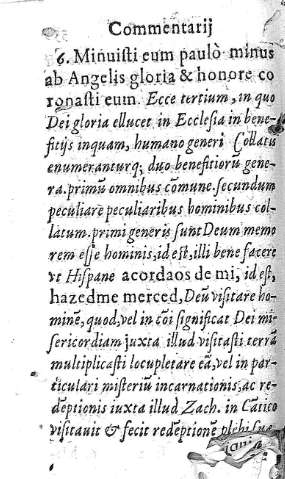 Commentarij
6. Minuisti eum paulò minus
ab Angelis gloria & honore co
ronasti eum. Ecce tertium, in quo
Dei gloria ellucet in Ecclesia in bene-
fitijs inquam, humano generi Collatis
enumeranturq; duo benefitiorũ gene-
ra. primũ omnibus cõmune. secundum
peculiare peculiaribus hominibus col-
latum. primi generis sunt Deum memo
rem esse hominis, id est, illi bene facere
vt Hispane acordaos de mi, id est,
hazedme merced, Deũ visitare ho-
minẽ, quod, vel in cõi significat Dei mi-
sericordiam juxta illud visitasti terrã
multiplicasti locupletare eã, vel in par-
ticulari misteriũ incarnationis, ac re-
dẽptionis iuxta illud Zach. in Cãtico
visitauit & fecit redẽptionẽ plebi suæ